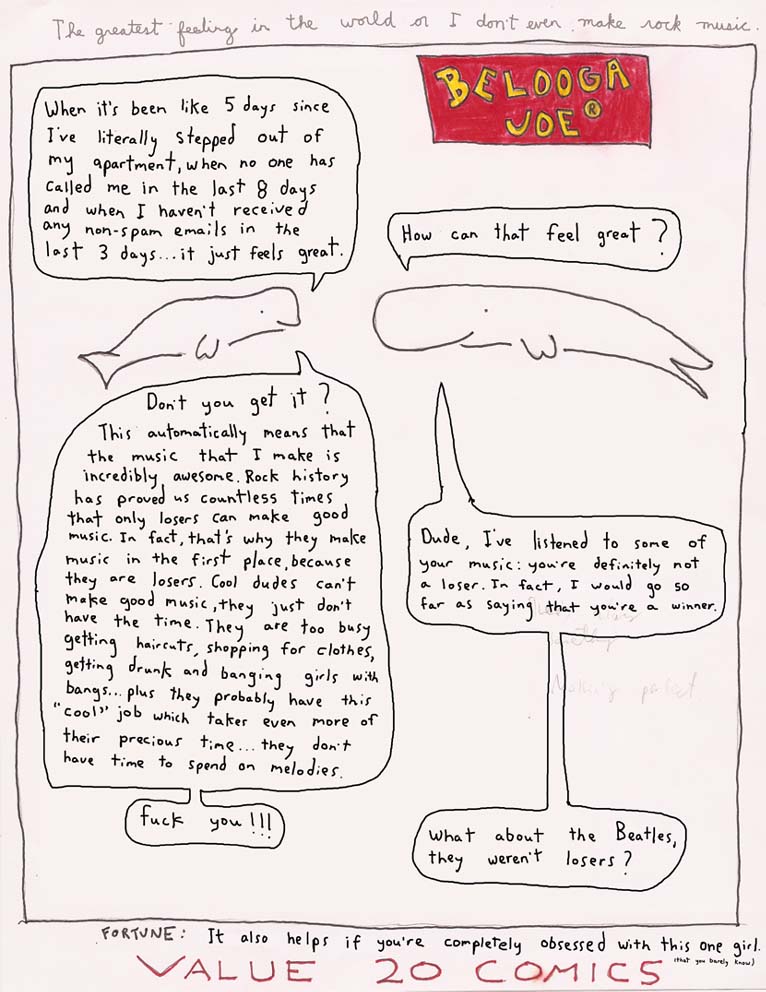 The greatest feeling in the world or I don't even make rock music.
BELOOGA
JOE®
When it's been like 5 days since
I've literally stepped out of
my apartment, when no one has
called me in the last 8 days
and when I haven't received
any non-spam emails in the
last 3 days... it just feels great.
How can that feel great?
Don't you get it?
This automatically means that
the music that I make is
incredibly awesome. Rock history
has proved us countless times
that only losers can make good
music. In fact, that's why they make
music in the first place, because
they are losers. Cool dudes can't
make good music, they just don't
have the time. They are too busy
getting haircuts, shopping for clothes,
getting drunk and banging girls with
bangs... plus they probably have this
"cool" job which takes even more of
their precious time... they don't
have time to spend on melodies.
Dude, I've listened to some of
your music: you're definitely not
a loser. In fact, I would go so
far as saying that you're a winner.
fuck you!!!
What about the Beatles,
they weren't losers?
FORTUNE: It also helps if you're completely obsessed with this one girl.
(that you barely know)
VALUE 20 COMICS